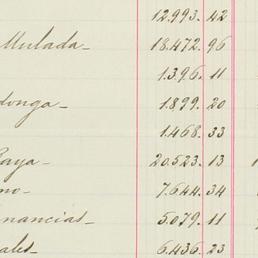 12.993. 42
Mulada - 18.472. 96
1.396. 11
donga - 1.899. 20
1.468. 33
Raya - 20.523. 13
no - 7.644. 34
nancias - 5.079. 11
ales - 6.436. 23